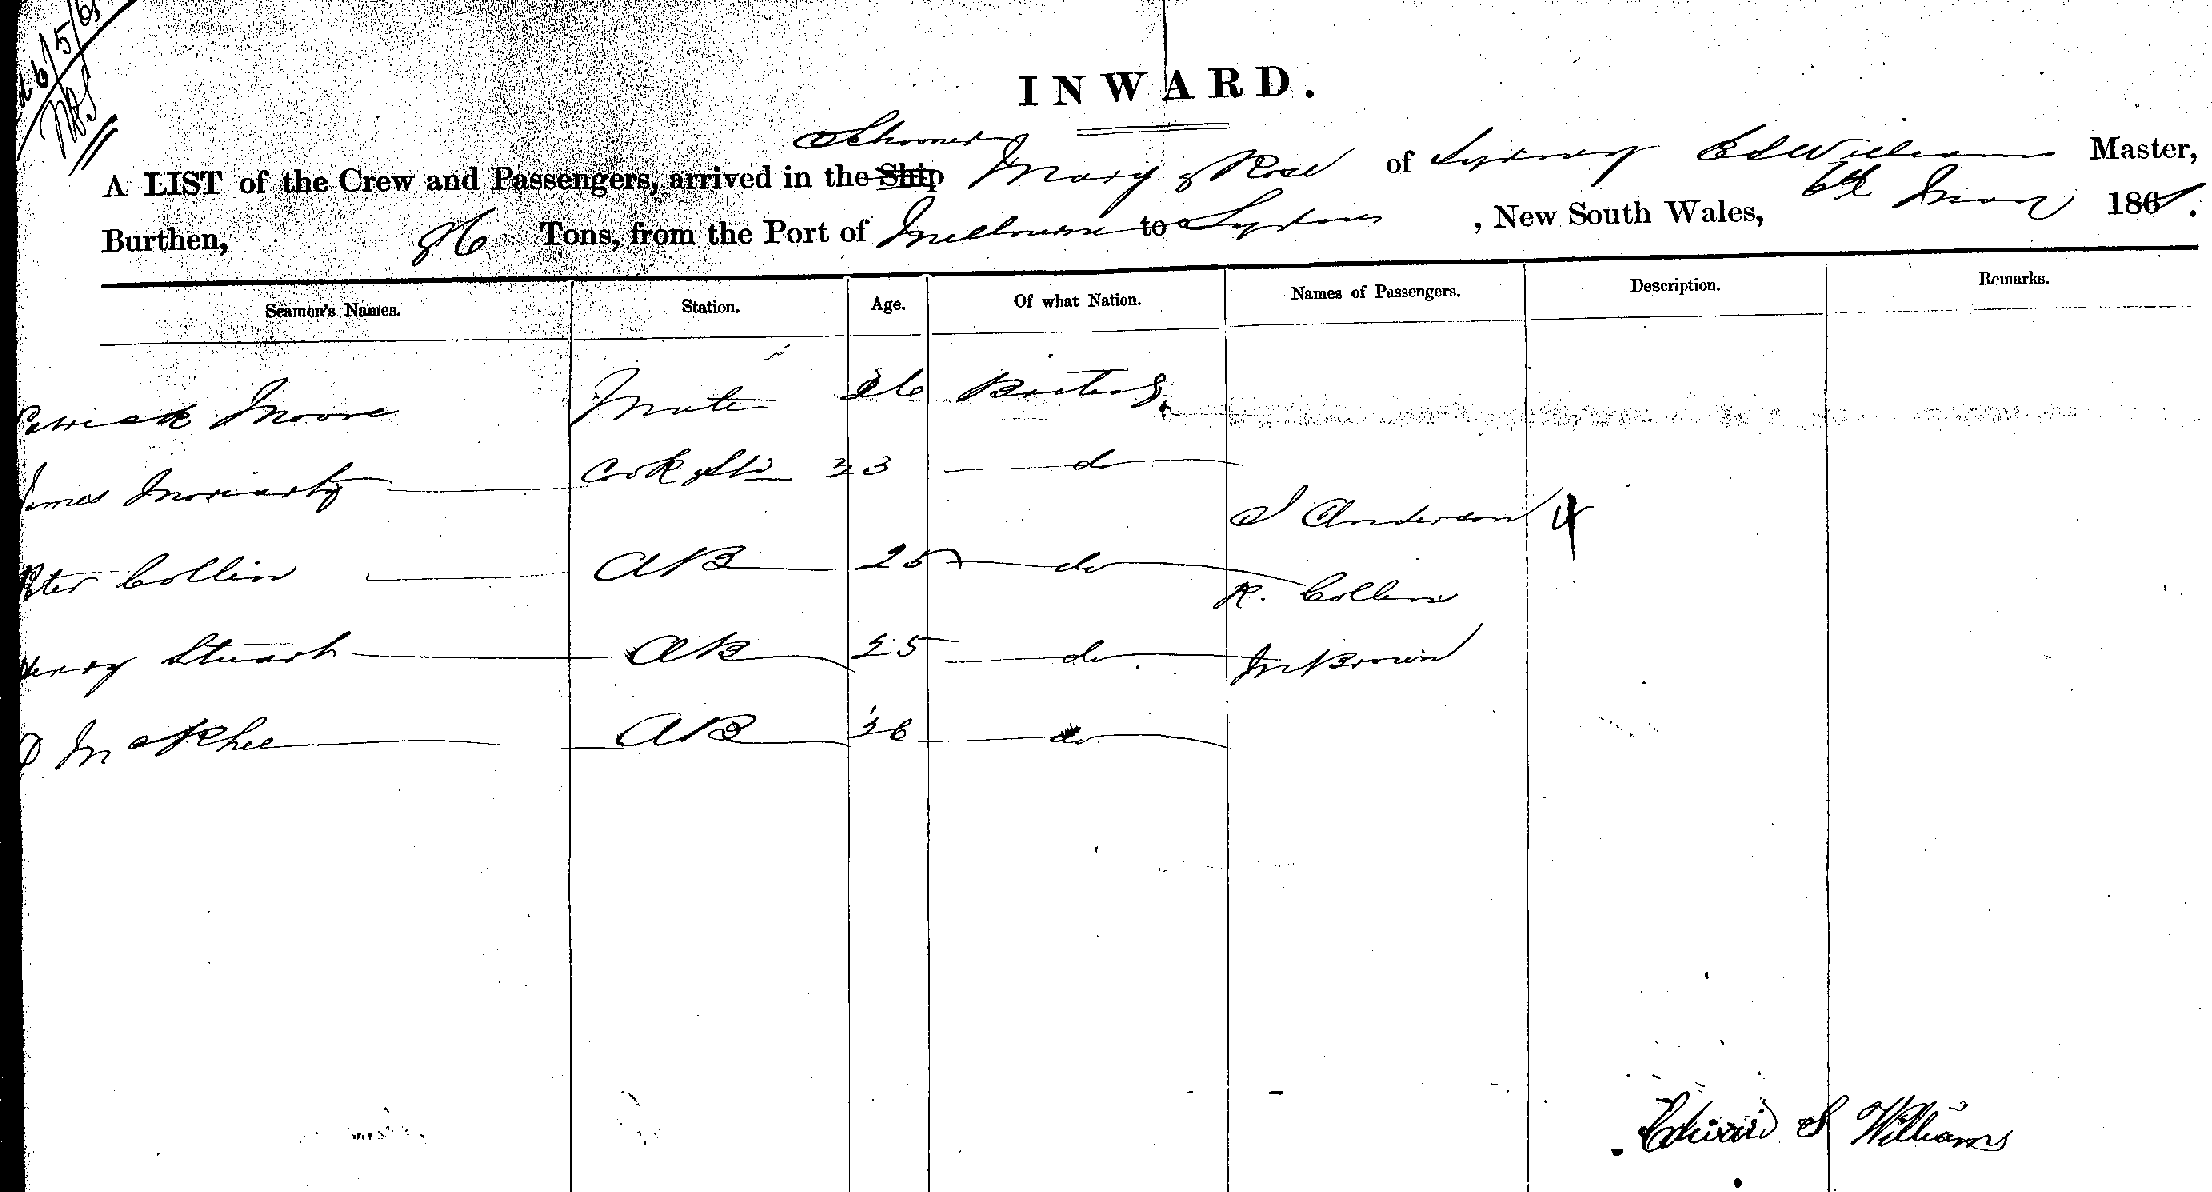 INWARD.
Schooner
A LIST of the Crew and Passengers, arrived in the Ship Mary & Rose of Sydney E S Williams Master,
Burthen, 86 Tons, from the Port of Melbourne to Sydney, New South Wales, 6th May 186
Seamen's Names. Station. Age. Of what Nation. Names of Passengers. Description. Remarks.
Patrick Moore Mate 26 British
James Moriarty Cook & St 23 do
S Anderson
Peter Collin AB 25 do
R. Collin
Henry Stuart AB 25 do
Brown
D McPhee AB do
Edward S Williams